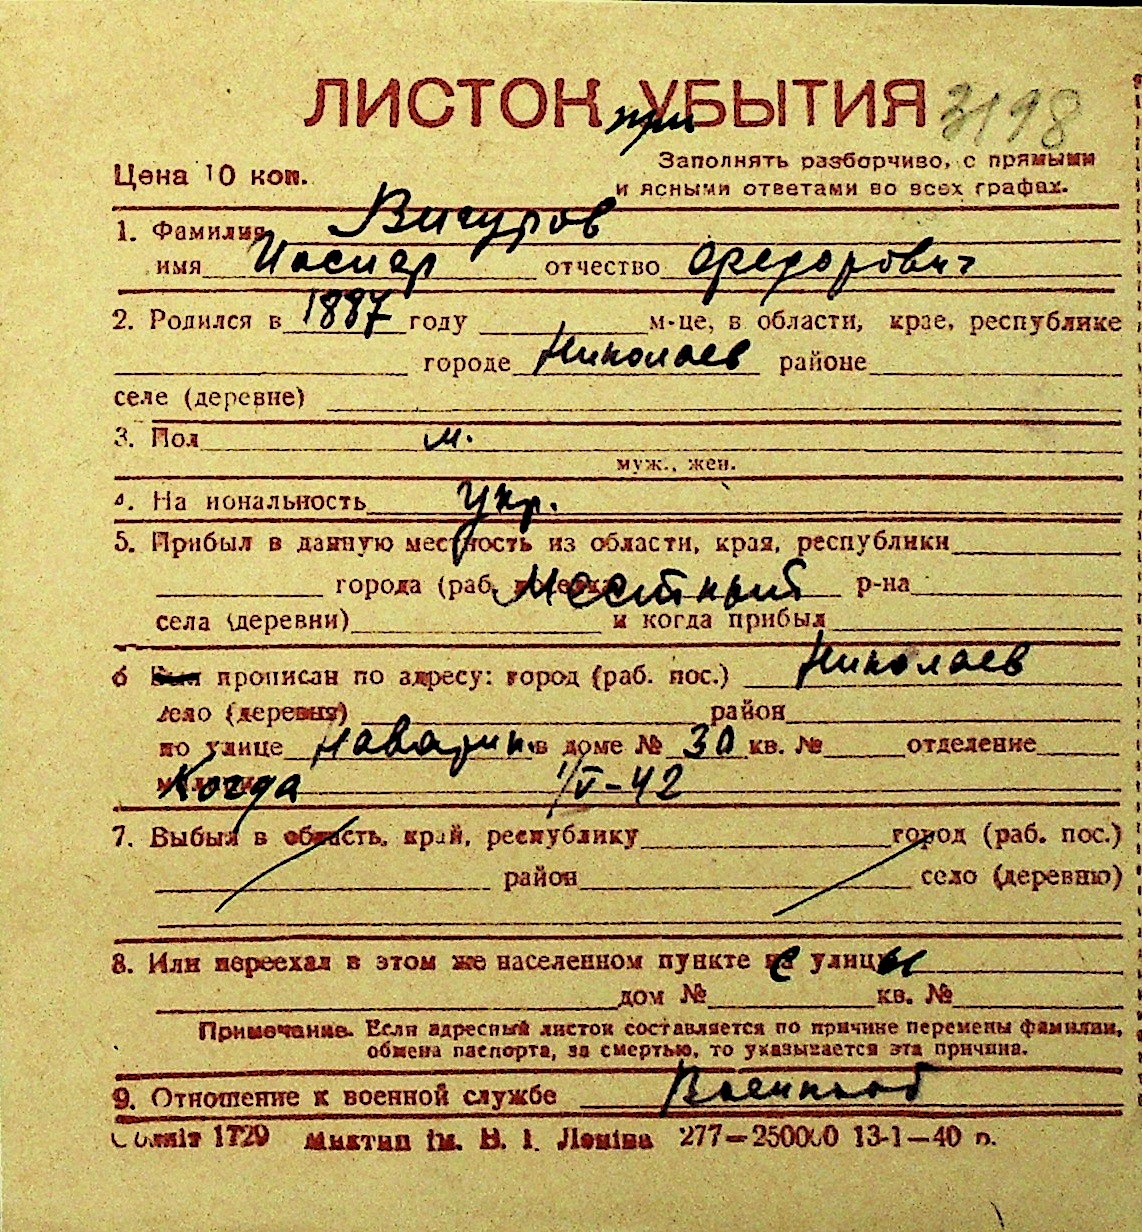 ЛИСТОК при УБЫТИЯ 3198
Цена 10 коп.
Заполнять разборчиво, с прямыми
и ясными ответами во всех графах.
1. Фамилия Вигуров
имя отчество Федорович
2. Родился в 1887 году м-це, в области, крае, республике
городе Николаев районе
селе (деревне)
3. Пол м.
муж., жен.
4. На иональность укр.
5. Прибыл в данную местность из области, края, республики
города (раб. поселка Местный р-на
села (деревни) и когда прибыл
6 Был прописан по адресу: город (раб. пос.) Николаев
село (деревня) район
по улице Наварин. в доме № 30 кв. № отделение
милиции Когда 1/V-42
7. Выбыл в область, край, республику город (раб. пос.)
район село (деревню)
8. Или переехал в этом же населенном пункте с улицы
дом № кв. №
Примечание. Если адресный листок составляется по причине перемены фамилии,
обмена паспорта, за смертью, то указывается эта причина.
9. Отношение к военной службе Военнооб
1729 Миктип ім. В. І. Леніна 277—250000 13-1—40 р.